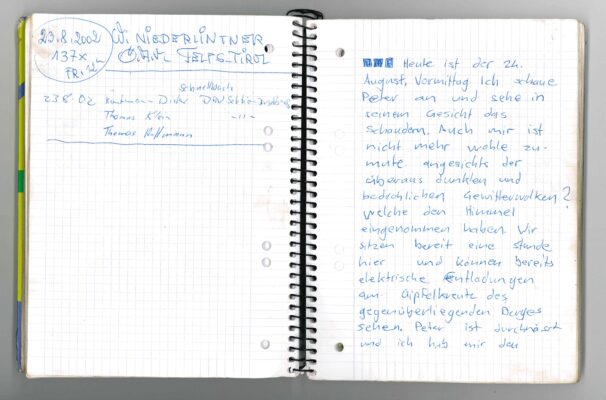 23.8.2002
137x
FR.
W. NIEDERLINTNER
Ö.A.V. TELFS-TIROL
23.8.02 Dieter DAV Sektion
Thomas Klein -"-
Thomas Hoffmann
Heute ist der 24.
August, Vormittag Ich schaue
Peter an und sehe in
seinem Gesicht das
Schaudern. Auch mir ist
nicht mehr wohle zu-
mute angesichts der
überaus dunklen und
bedrohlichen Gewitterwolken?
welche den Himmel
eingenommen haben. Wir
sitzen bereit eine Stunde
hier und können bereits
elektrische Entladungen
am Gipfelkreute des
gegenüberliegenden Berges
sehen. Peter ist durchnässt
und ich hab mir den